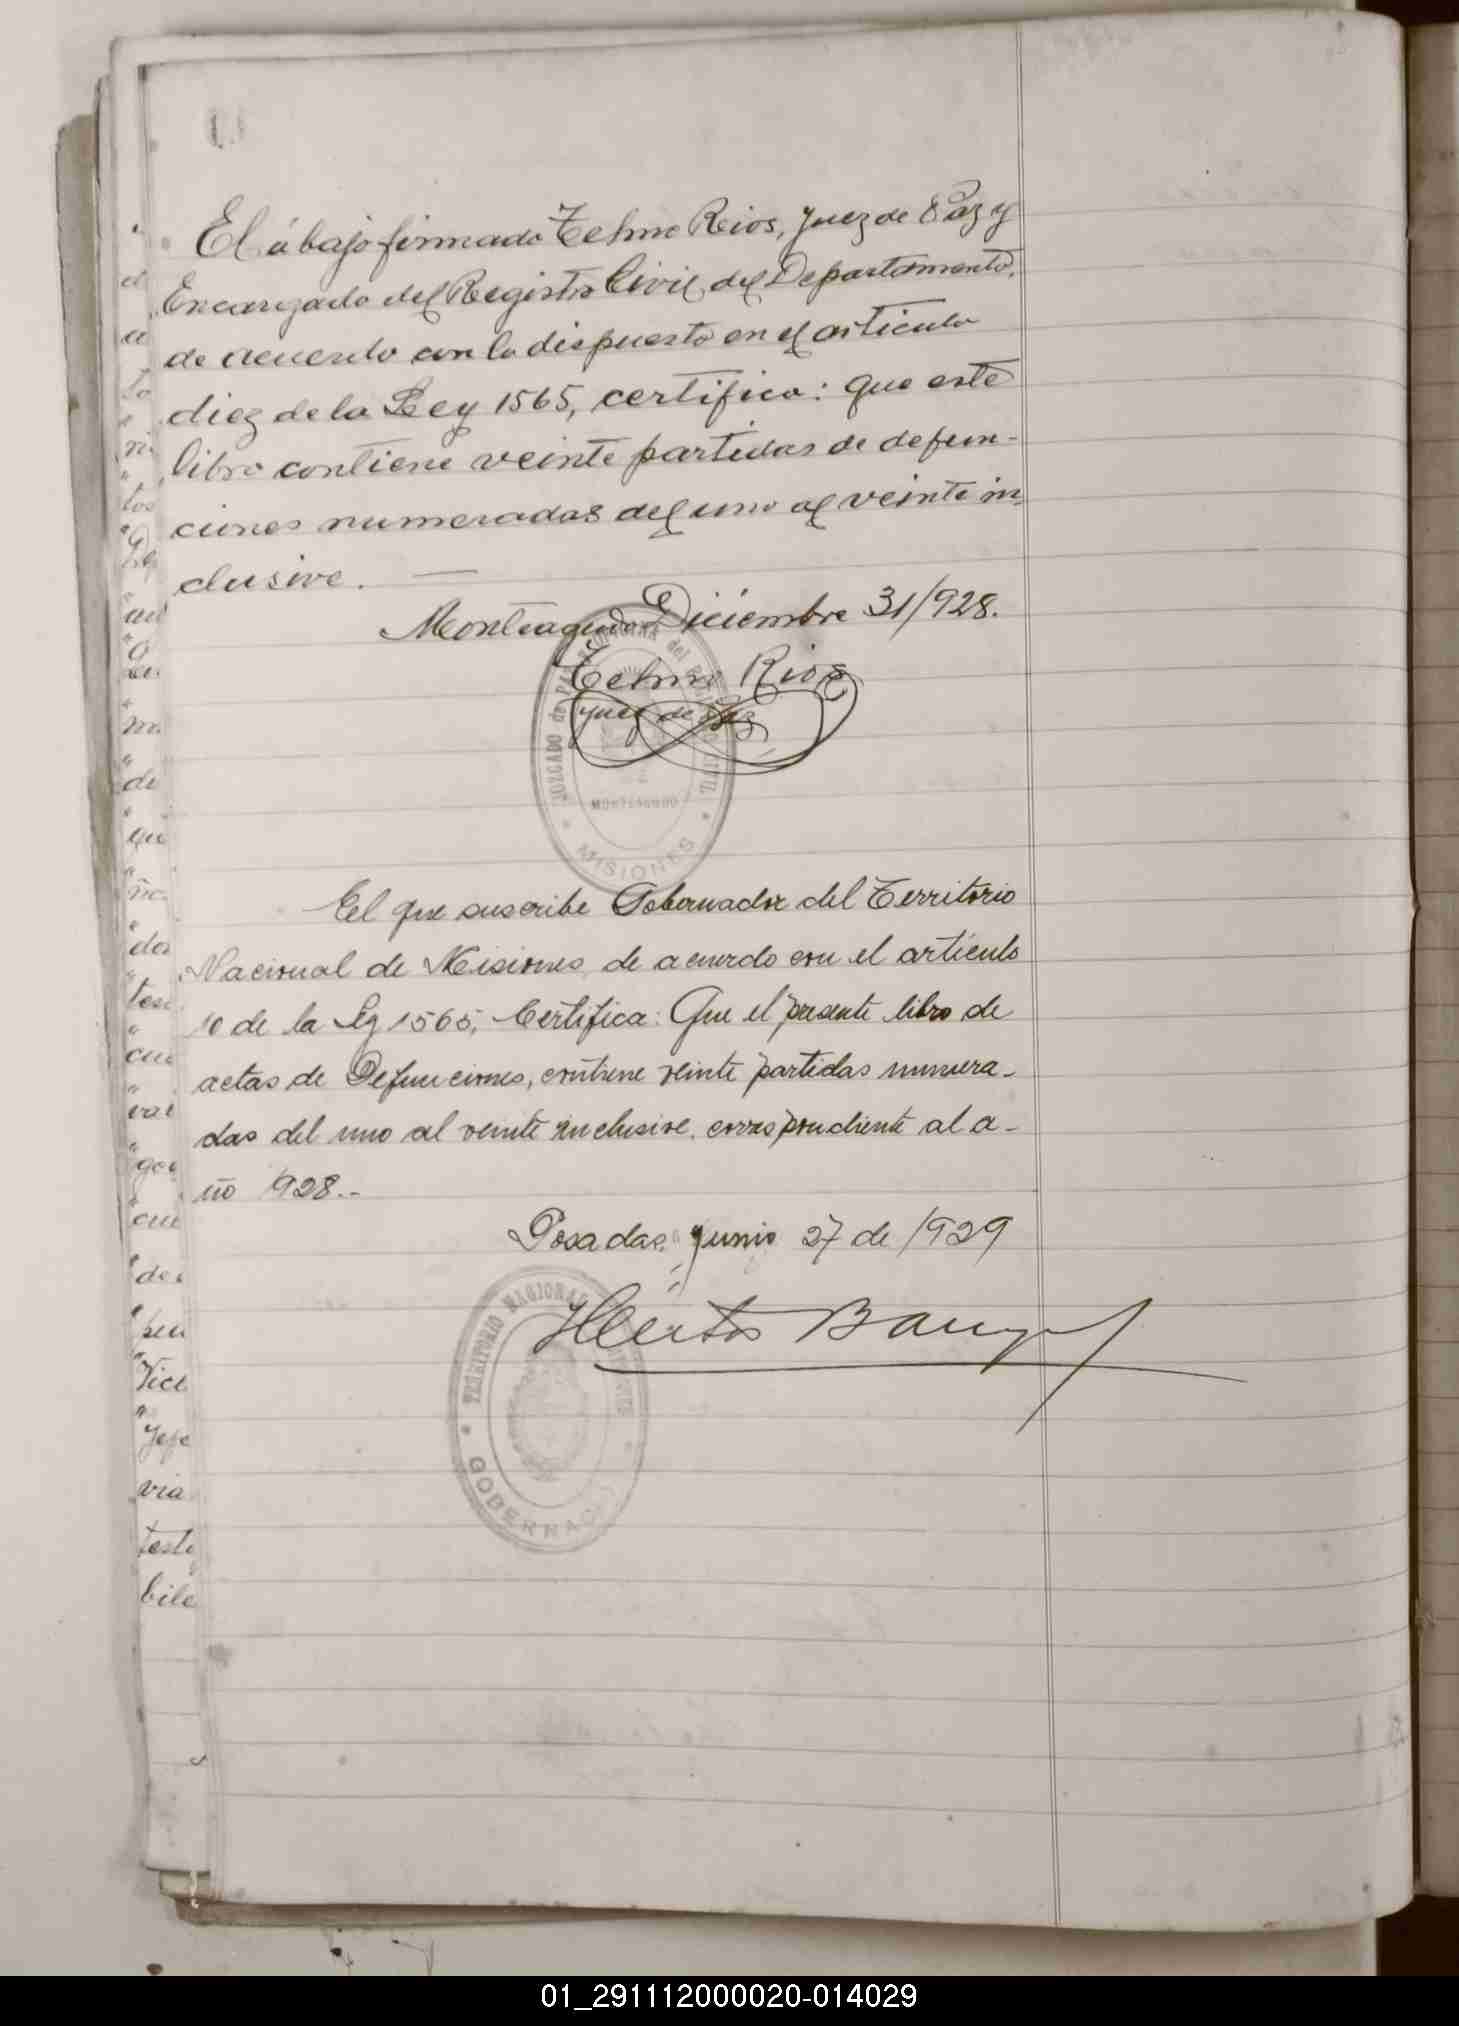 El abajo firmado Telmo Rios, Juez de Paz y
Encargado del Registro Civil del Departamento,
de acuerdo con lo dispuesto en el articulo
diez de la Ley 1565, certifica: que este
libro contiene veinte partidas de defun-
ciones numeradas del uno al veinte in-
clusive.
Monteagudo Diciembre 31/928.
Telmo Rios
Juez de Paz
JUZGADO de PAZ del CIVIL
MONTEAGUDO
MISIONES
El que suscribe Gobernador del Territorio
Nacional de Misiones, de acuerdo con el artículo
10 de la Ley 1565, Certifica: Que el presente libro de
actas de Defunciones, contiene veinte partidas numera-
das del uno al veinte inclusive, correspondiente al a-
ño 1928.-
Posadas, Junio 27 de 1929
TERRITORIO NACIONAL
GOBERNACION
01_291112000020-014029